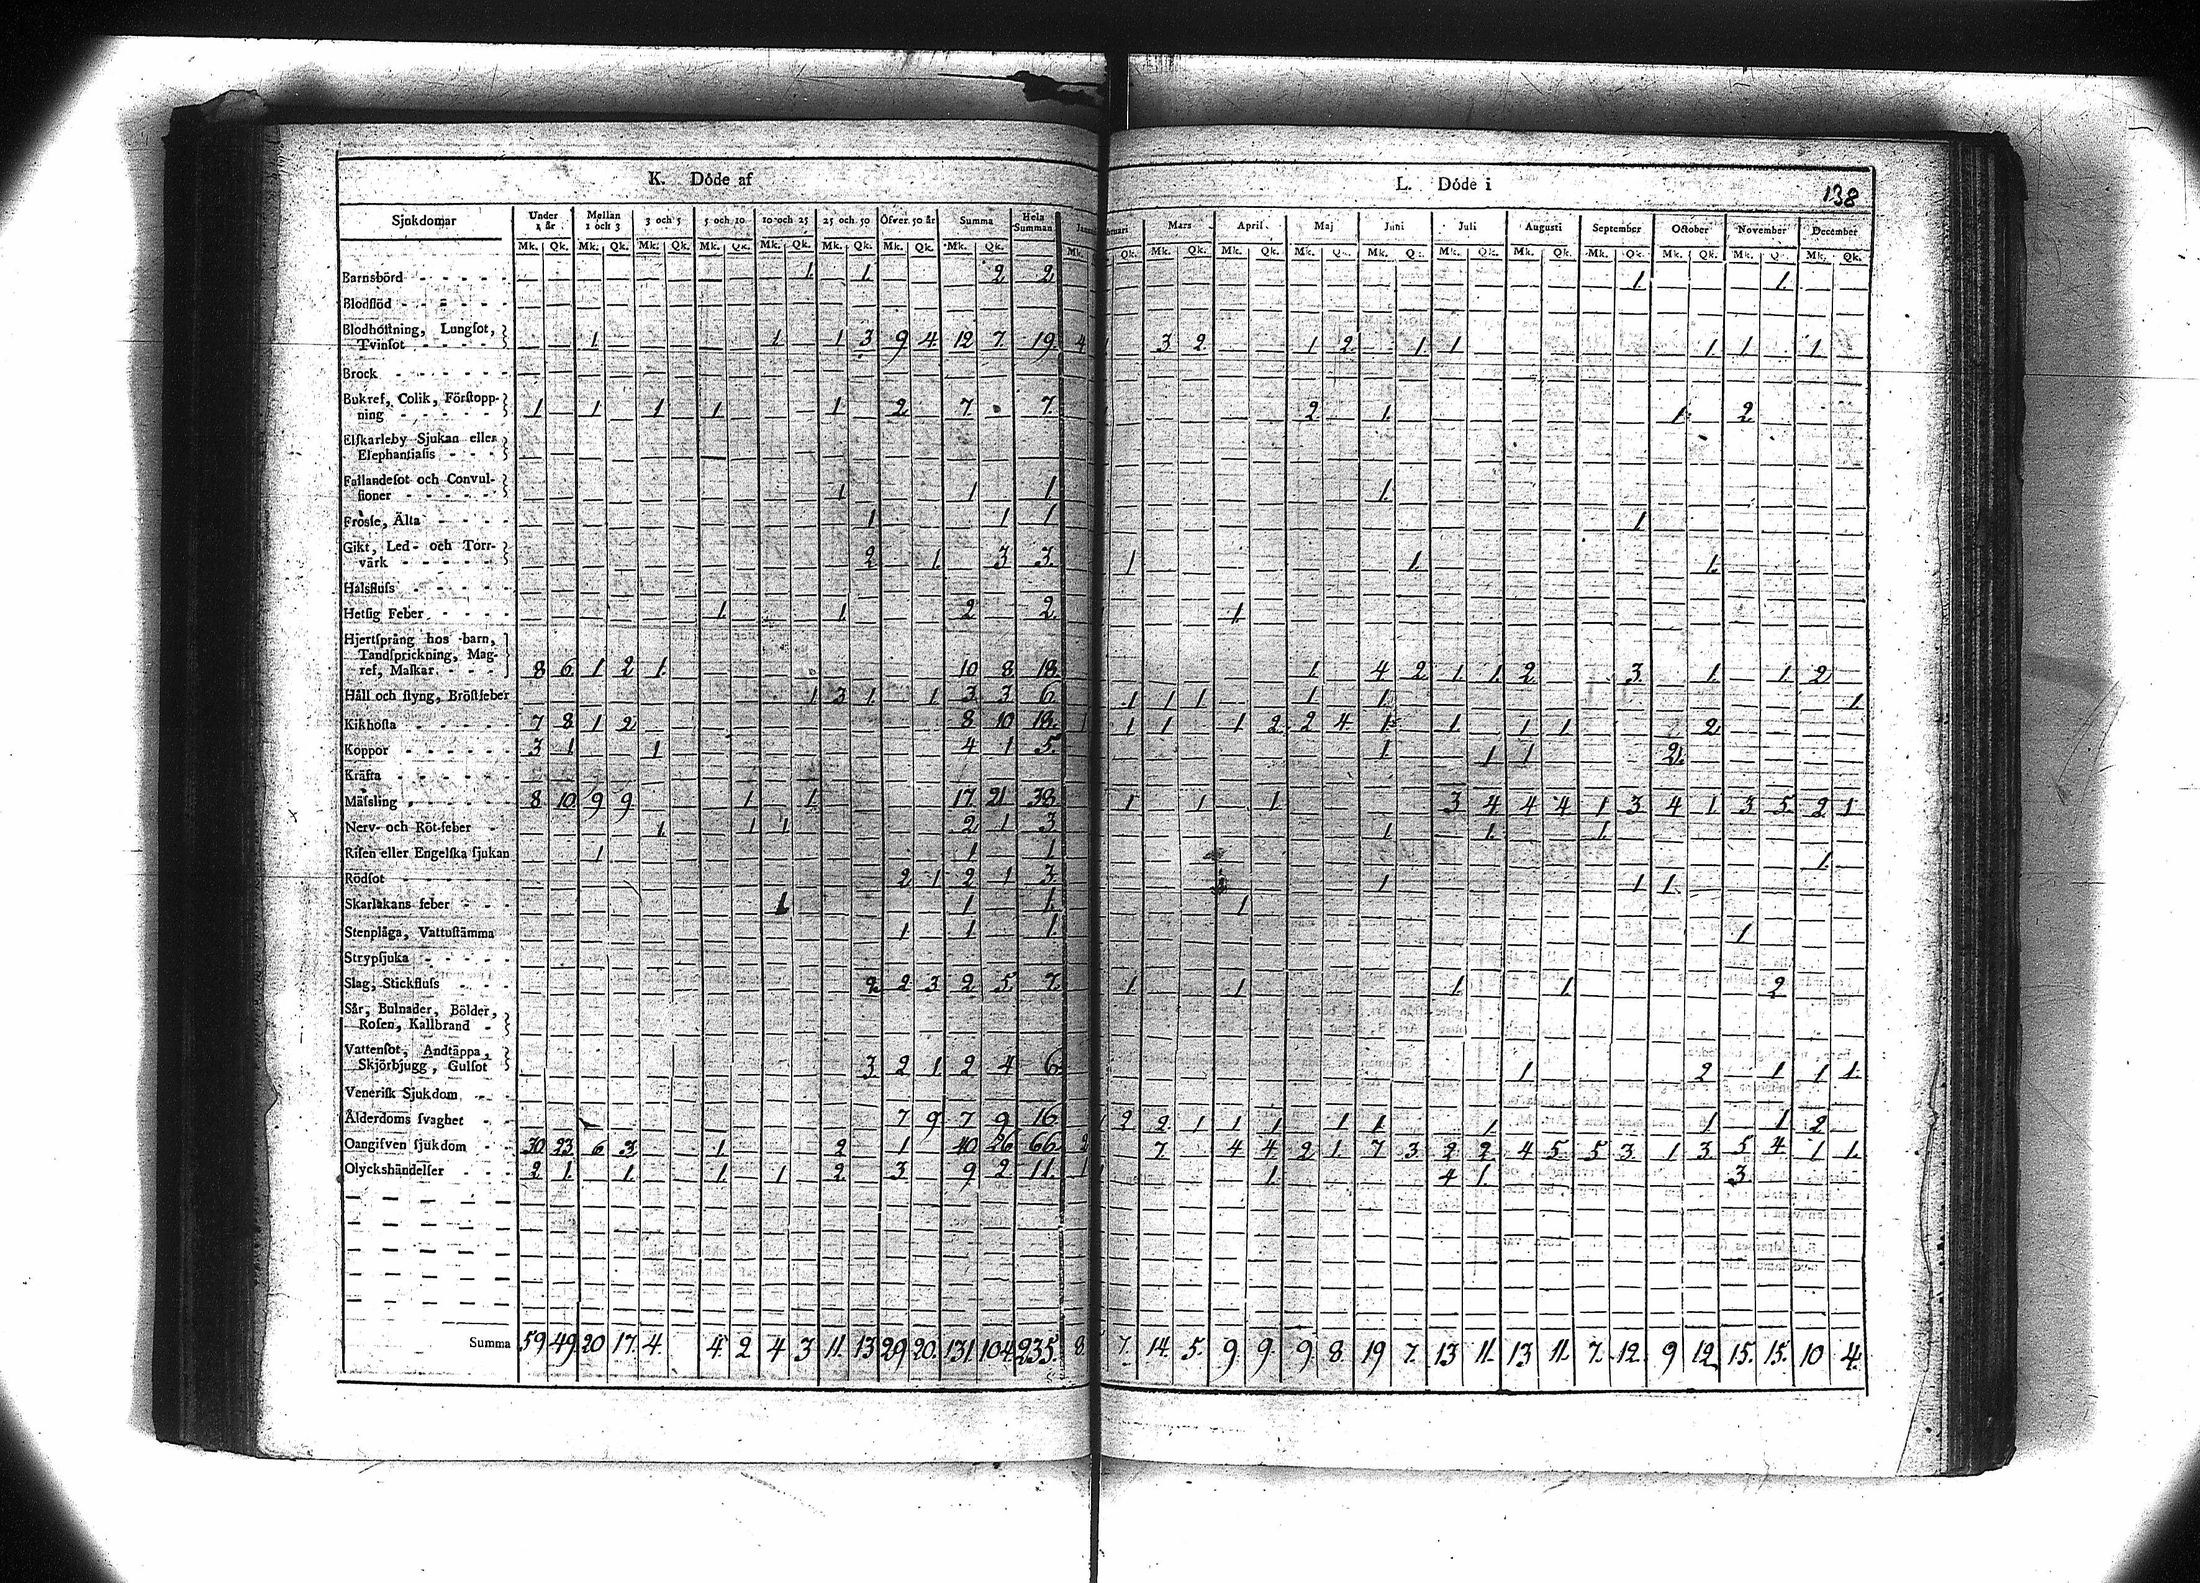 K. Döde af
L. Döde i
138
Sjukdomar Under 1 år Mellan 1 och 3 3 och 5 5 och 10 10 och 25 25 och 50 Öfver 50 år Summa Hela Summan Mars April Maj Juni Juli Augusti September October November December
Mk. Qk. Mk. Qk. Mk. Qk. Mk. Qk. Mk. Qk. Mk. Qk. Mk. Qk. Mk. Qk. Mk. Qk. Mk. Qk. Mk. Qk. Mk. Qk. Mk. Qk. Mk. Qk. Mk. Qk. Mk. Qk. Mk. Qk. Mk. Qk. Mk. Qk.
Barnsbörd 1 1 2 2 1 1
Blodflöd
Blodhoſtning, Lungſot,
Tvinſot 1 1 1 3 9 4 12 7 19 4 3 2 1 2 1 1 1 1 1
Brock
Bukref, Colik, Förſtopp-
ning 1 1 1 1 1 2 7 7 2 1 1 2
Elſkarleby Sjukan eller
Elephantiaſis
Fallandeſot och Convul-
ſioner 1 1 1 1
Frosſe, Älta 1 1 1 1
Gikt, Led- och Torr-
värk 2 1 3 3 1 1 1
Halsfluſs
Hetſig Feber 1 1 2 2 1
Hjertſprång hos barn,
Tandſprickning, Mag-
ref, Maſkar 8 6 1 2 1 10 8 18 1 4 2 1 1 2 3 1 1 2
Håll och ſtyng, Bröſtfeber 1 3 1 1 3 3 6 1 1 1 1 1 1
Kikhoſta 7 8 1 2 8 10 18 1 1 1 1 2 2 4 1 1 1 1 2
Koppor 3 1 1 4 1 5 1 1 1 2
Kräfta
Mäſsling 8 10 9 9 1 1 17 21 38 1 1 1 3 4 4 4 1 3 4 1 3 5 2 1
Nerv- och Röt-feber 1 1 1 2 1 3 1 1 1
Riſen eller Engelſka ſjukan 1 1 1 1
Rödſot 2 1 2 1 3 1 1 1
Skarlakans feber 1 1 1 1
Stenplåga, Vattuſtämma 1 1 1 1
Strypſjuka
Slag, Stickfluſs 2 2 3 2 5 7 1 1 1 1 2
Sår, Bulnader, Bölder,
Roſen, Kallbrand
Vattenſot, Andtäppa,
Skjörbjugg, Gulſot 3 2 1 2 4 6 1 2 1 1 1
Veneriſk Sjukdom
Ålderdoms ſvaghet 7 9 7 9 16 2 2 1 1 1 1 1 1 1 1 2
Oangifven ſjukdom 30 23 6 3 1 2 1 40 26 66 2 7 4 4 2 1 7 3 2 2 4 5 5 3 1 3 5 4 1 1
Olyckshändelſer 2 1 1 1 1 2 3 9 2 11 1 1 4 1 3
Summa 59 49 20 17 4 4 2 4 3 11 13 29 20 131 104 235 8 7 14 5 9 9 9 8 19 7 13 11 13 11 7 12 9 12 15 15 10 4